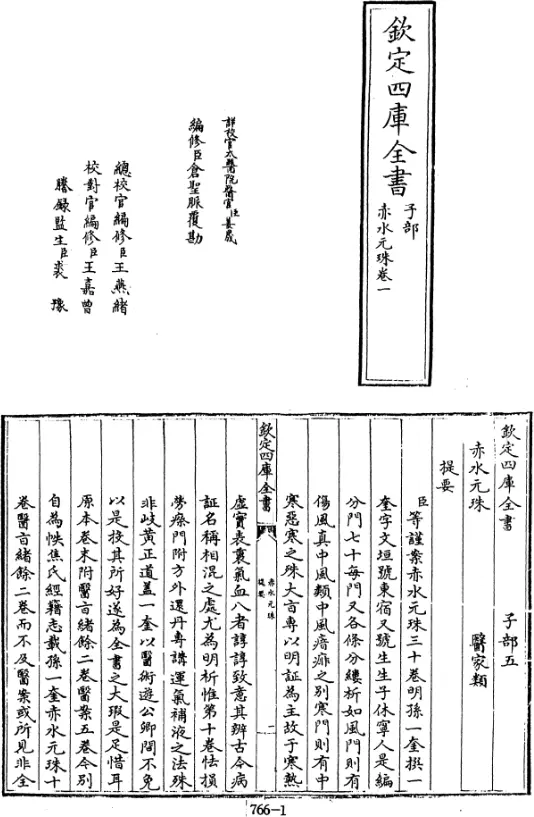 欽定四庫全書
子部
赤水元珠卷一
詳校官太醫院醫官臣姜晟
編修臣倉聖脈覆勘
總校官編修臣王燕緒
校對官編修臣王嘉曾
謄錄監生臣裘豫
欽定四庫全書
子部五
赤水元珠
醫家類
提要
臣等謹案赤水元珠三十卷明孫一奎撰一
奎字文垣號東宿又號生生子休寧人是編
分門七十每門又各條分縷析如風門則有
傷風真中風類中風瘖痱之別寒門則有中
寒惡寒之殊大㫖專以明証為主故于寒熱
欽定四庫全書
赤水元珠
提要
二
虛實表裏氣血八者諄諄致意其辨古今病
証名稱相混之處尤為明析惟第十卷怯損
勞瘵門附方外還丹專講運氣補液之法殊
非岐黃正道蓋一奎以醫術遊公卿間不免
以是投其所好遂為全書之大瑕是足惜耳
原本卷末附醫㫖緒餘二卷醫案五卷今別
自為帙焦氏經籍志載孫一奎赤水元珠十
卷醫㫖緒餘二卷而不及醫案或所見非全
766-1